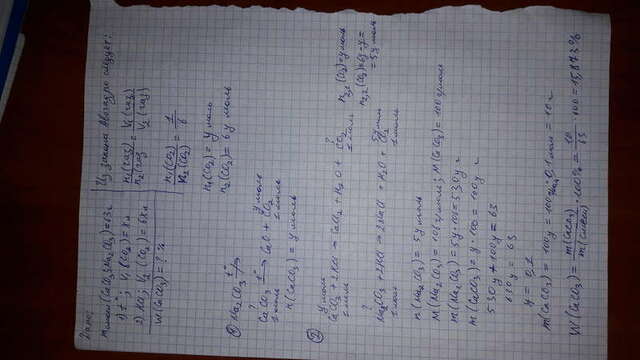 Дано:
m смеси (CaCO3, Na2CO3) = 63 г
1) t°; V1 (CO2) = X л
2) HCl; V2 (CO2) = 6X л
W(CaCO3) = ? %
Из закона Авогадро следует:
n1(газ)/n2(газ) = V1(газ)/V2(газ)
n1(CO2)/n2(CO2) = 1/6
n1(CO2) = y моль
n2(CO2) = 6y моль
① Na2CO3 t°↛
? y моль
CaCO3 t°→ CaO + CO2
1 моль 1 моль
n(CaCO3) = y моль
②
y моль ?
CaCO3 + 2HCl → CaCl2 + H2O + CO2
1 моль 1 моль
n2,1(CO2) = y моль
n2,2(CO2) = 6y - y =
= 5y моль
? 5y моль
Na2CO3 + 2HCl → 2NaCl + H2O + CO2
1 моль 1 моль
n(Na2CO3) = 5y моль
M(Na2CO3) = 106 г/моль; M(CaCO3) = 100 г/моль
m(Na2CO3) = 5y · 106 = 530y г
m(CaCO3) = y · 100 = 100y г
530y + 100y = 63
630y = 63
y = 0,1
m(CaCO3) = 100y = 100 г/моль · 0,1 моль = 10 г
W(CaCO3) = m(CaCO3)/m(смеси) · 100% = 10/63 · 100 = 15,873%